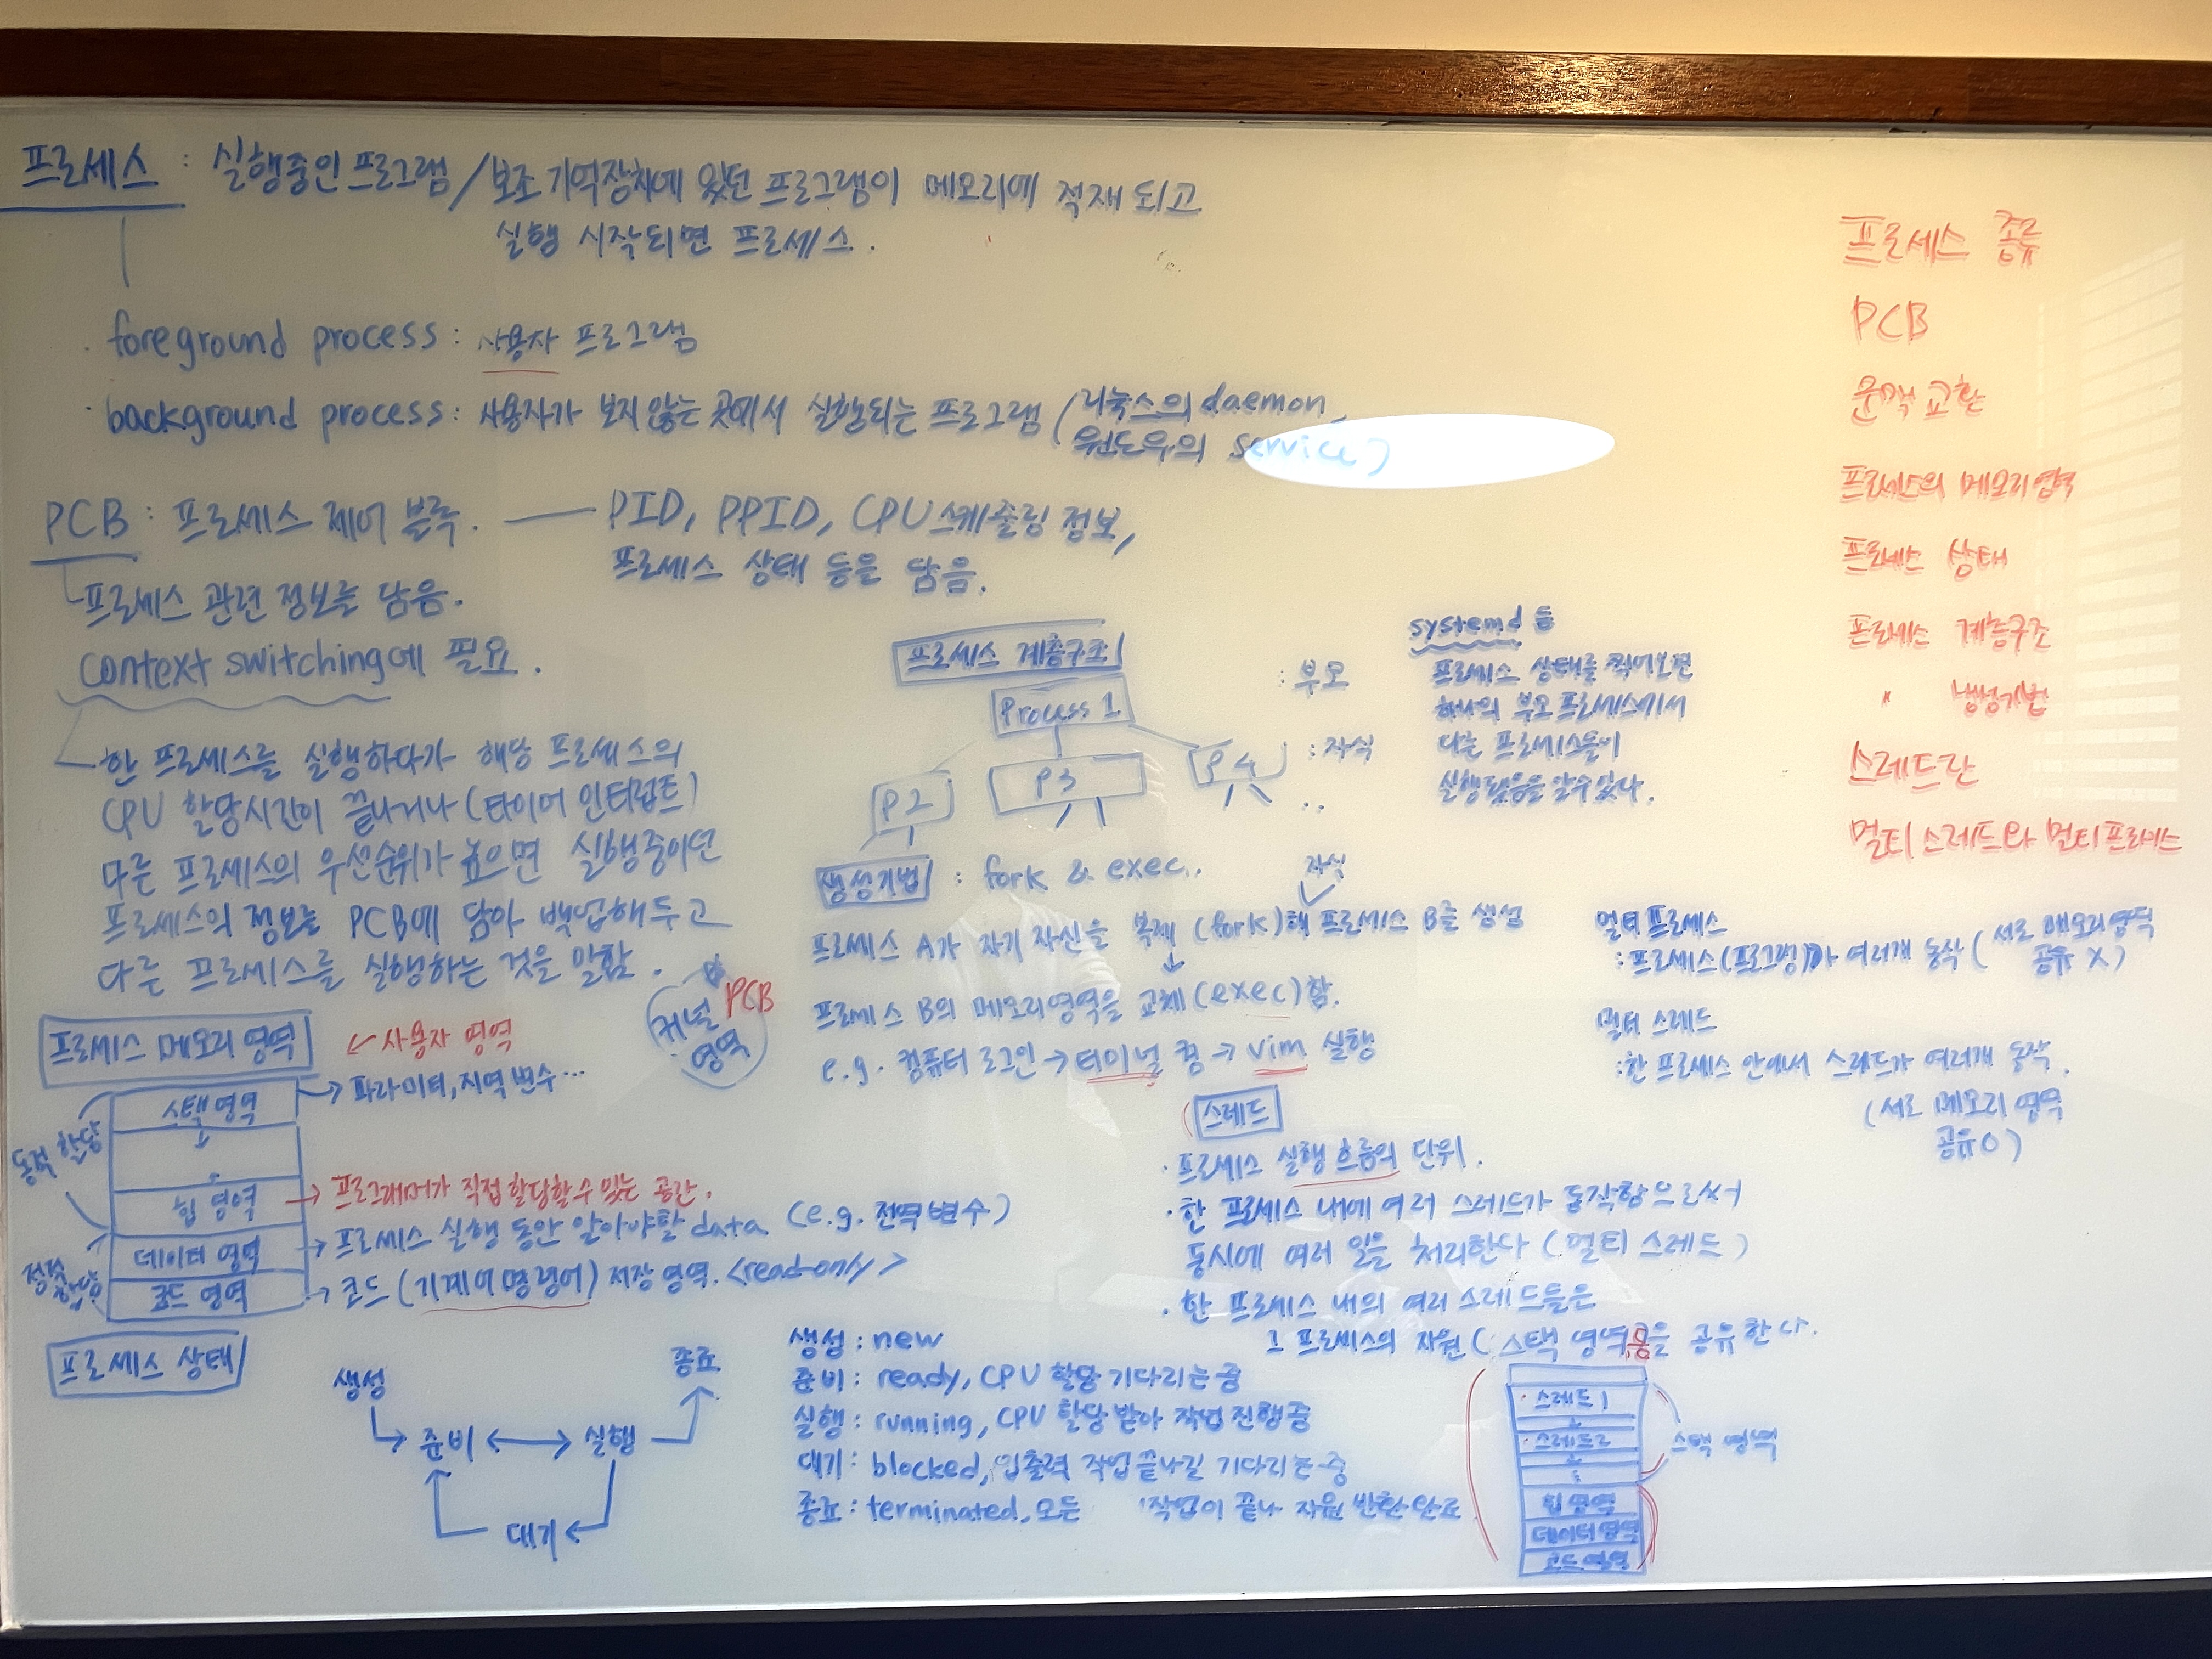 프로세스 : 실행중인 프로그램 / 보조 기억장치에 있던 프로그램이 메모리에 적재 되고
실행 시작되면 프로세스.
· foreground process : 사용자 프로그램
· background process : 사용자가 보지 않는 곳에서 실행되는 프로그램 (리눅스의 daemon,
윈도우의 service)
PCB : 프로세스 제어 블록. — PID, PPID, CPU 스케줄링 정보,
프로세스 상태 등을 담음.
프로세스 관련 정보를 담음.
context switching에 필요.
한 프로세스를 실행하다가 해당 프로세스의
CPU 할당시간이 끝나거나 (타이머 인터럽트)
다른 프로세스의 우선순위가 높으면 실행중이던
프로세스의 정보를 PCB에 담아 백업해두고
다른 프로세스를 실행하는 것을 말함.
커널 영역
PCB
프로세스 메모리 영역
← 사용자 영역
스택 영역 → 파라미터, 지역 변수 …
힙 영역 → 프로그래머가 직접 할당할 수 있는 공간.
데이터 영역 → 프로세스 실행 동안 알아야할 data (e.g. 전역 변수)
코드 영역 → 코드 (기계어 명령어) 저장 영역. <read-only>
동적 할당
정적 할당
프로세스 상태
생성
준비 ↔ 실행
종료
대기
생성 : new
준비 : ready, CPU 할당 기다리는 중
실행 : running, CPU 할당 받아 작업 진행 중
대기 : blocked, 입출력 작업 끝나길 기다리는 중
종료 : terminated, 모든 작업이 끝나 자원 반환 완료
프로세스 계층구조
Process 1 : 부모
P2 P3 P4 : 자식
..
systemd 등
프로세스 상태를 찍어보면
하나의 부모 프로세스에서
다른 프로세스들이
실행됐음을 알 수 있다.
생성기법 : fork & exec..
자식
프로세스 A가 자기 자신을 복제 (fork)해 프로세스 B를 생성
프로세스 B의 메모리영역을 교체 (exec)함.
e.g. 컴퓨터 로그인 → 터미널 켬 → vim 실행
스레드
· 프로세스 실행 흐름의 단위.
· 한 프로세스 내에 여러 스레드가 동작함으로써
동시에 여러 일을 처리한다 (멀티 스레드)
· 한 프로세스 내의 여러 스레드들은
그 프로세스의 자원 (스택 영역 을 공유한다.
스레드1
스레드2
스택 영역
힙 영역
데이터 영역
코드 영역
멀티 프로세스
: 프로세스(프로그램)가 여러개 동작 (서로 메모리영역
공유 X)
멀티 스레드
: 한 프로세스 안에서 스레드가 여러개 동작.
(서로 메모리 영역
공유 O)
프로세스 종류
PCB
문맥 교환
프로세스의 메모리 영역
프로세스 상태
프로세스 계층구조
〃 생성기법
스레드란
멀티 스레드와 멀티 프로세스